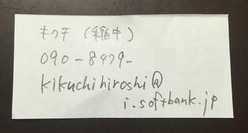 キクチ (菊地)
090-8979-
kikuchihiroshi@
i.softbank.jp